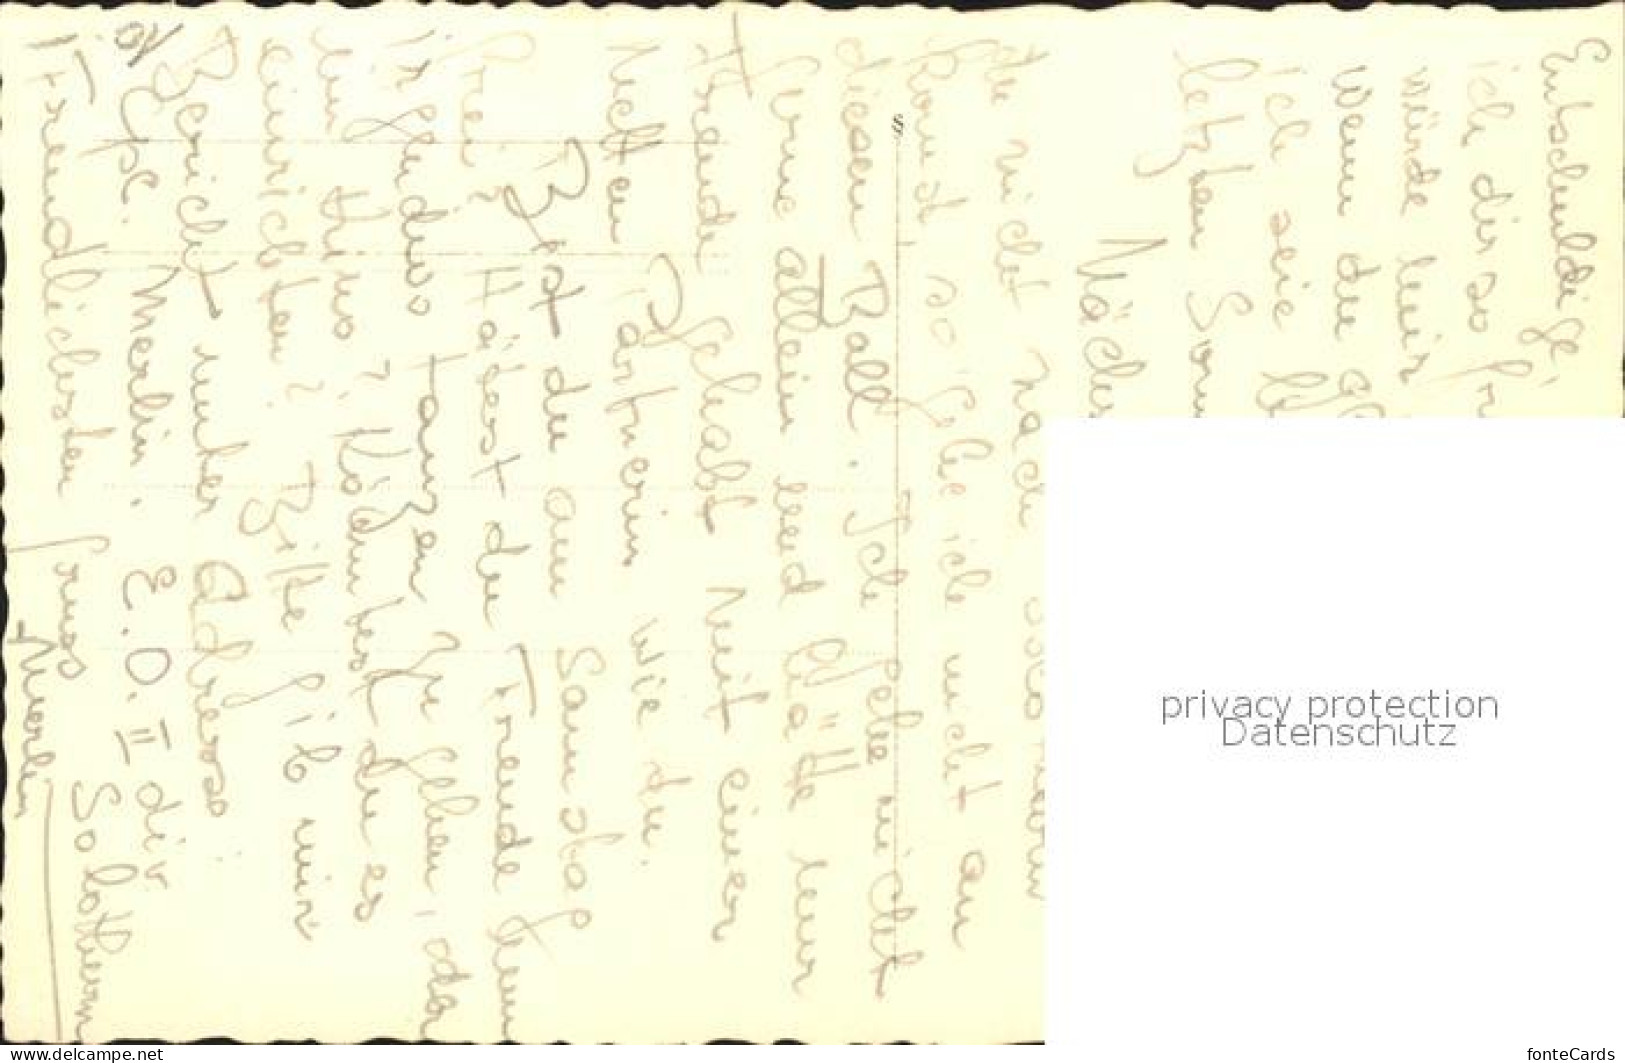 Entschuldige,
ich dir so fr
würde mir
Wenn du
ich sie
letzten Som
Näch
du nicht nach
kommst, so gehe ich nicht an
diesen Ball. Ich gehe nicht
gerne allein und hätte nur
Freude gehabt mit einer
netten Partnerin wie du.
Bist du am Samstag
frei? Hättest du Freude
irgendwo tanzen zu gehen, oder
ins Kino? Könntest du es
einrichten? Bitte gib mir
Bericht unter Adresse
Merlin, E.O. II div
Solothurn
Freundlichsten Gruss
Merlin
§
privacy protection
Datenschutz
www.delcampe.net
fonteCards